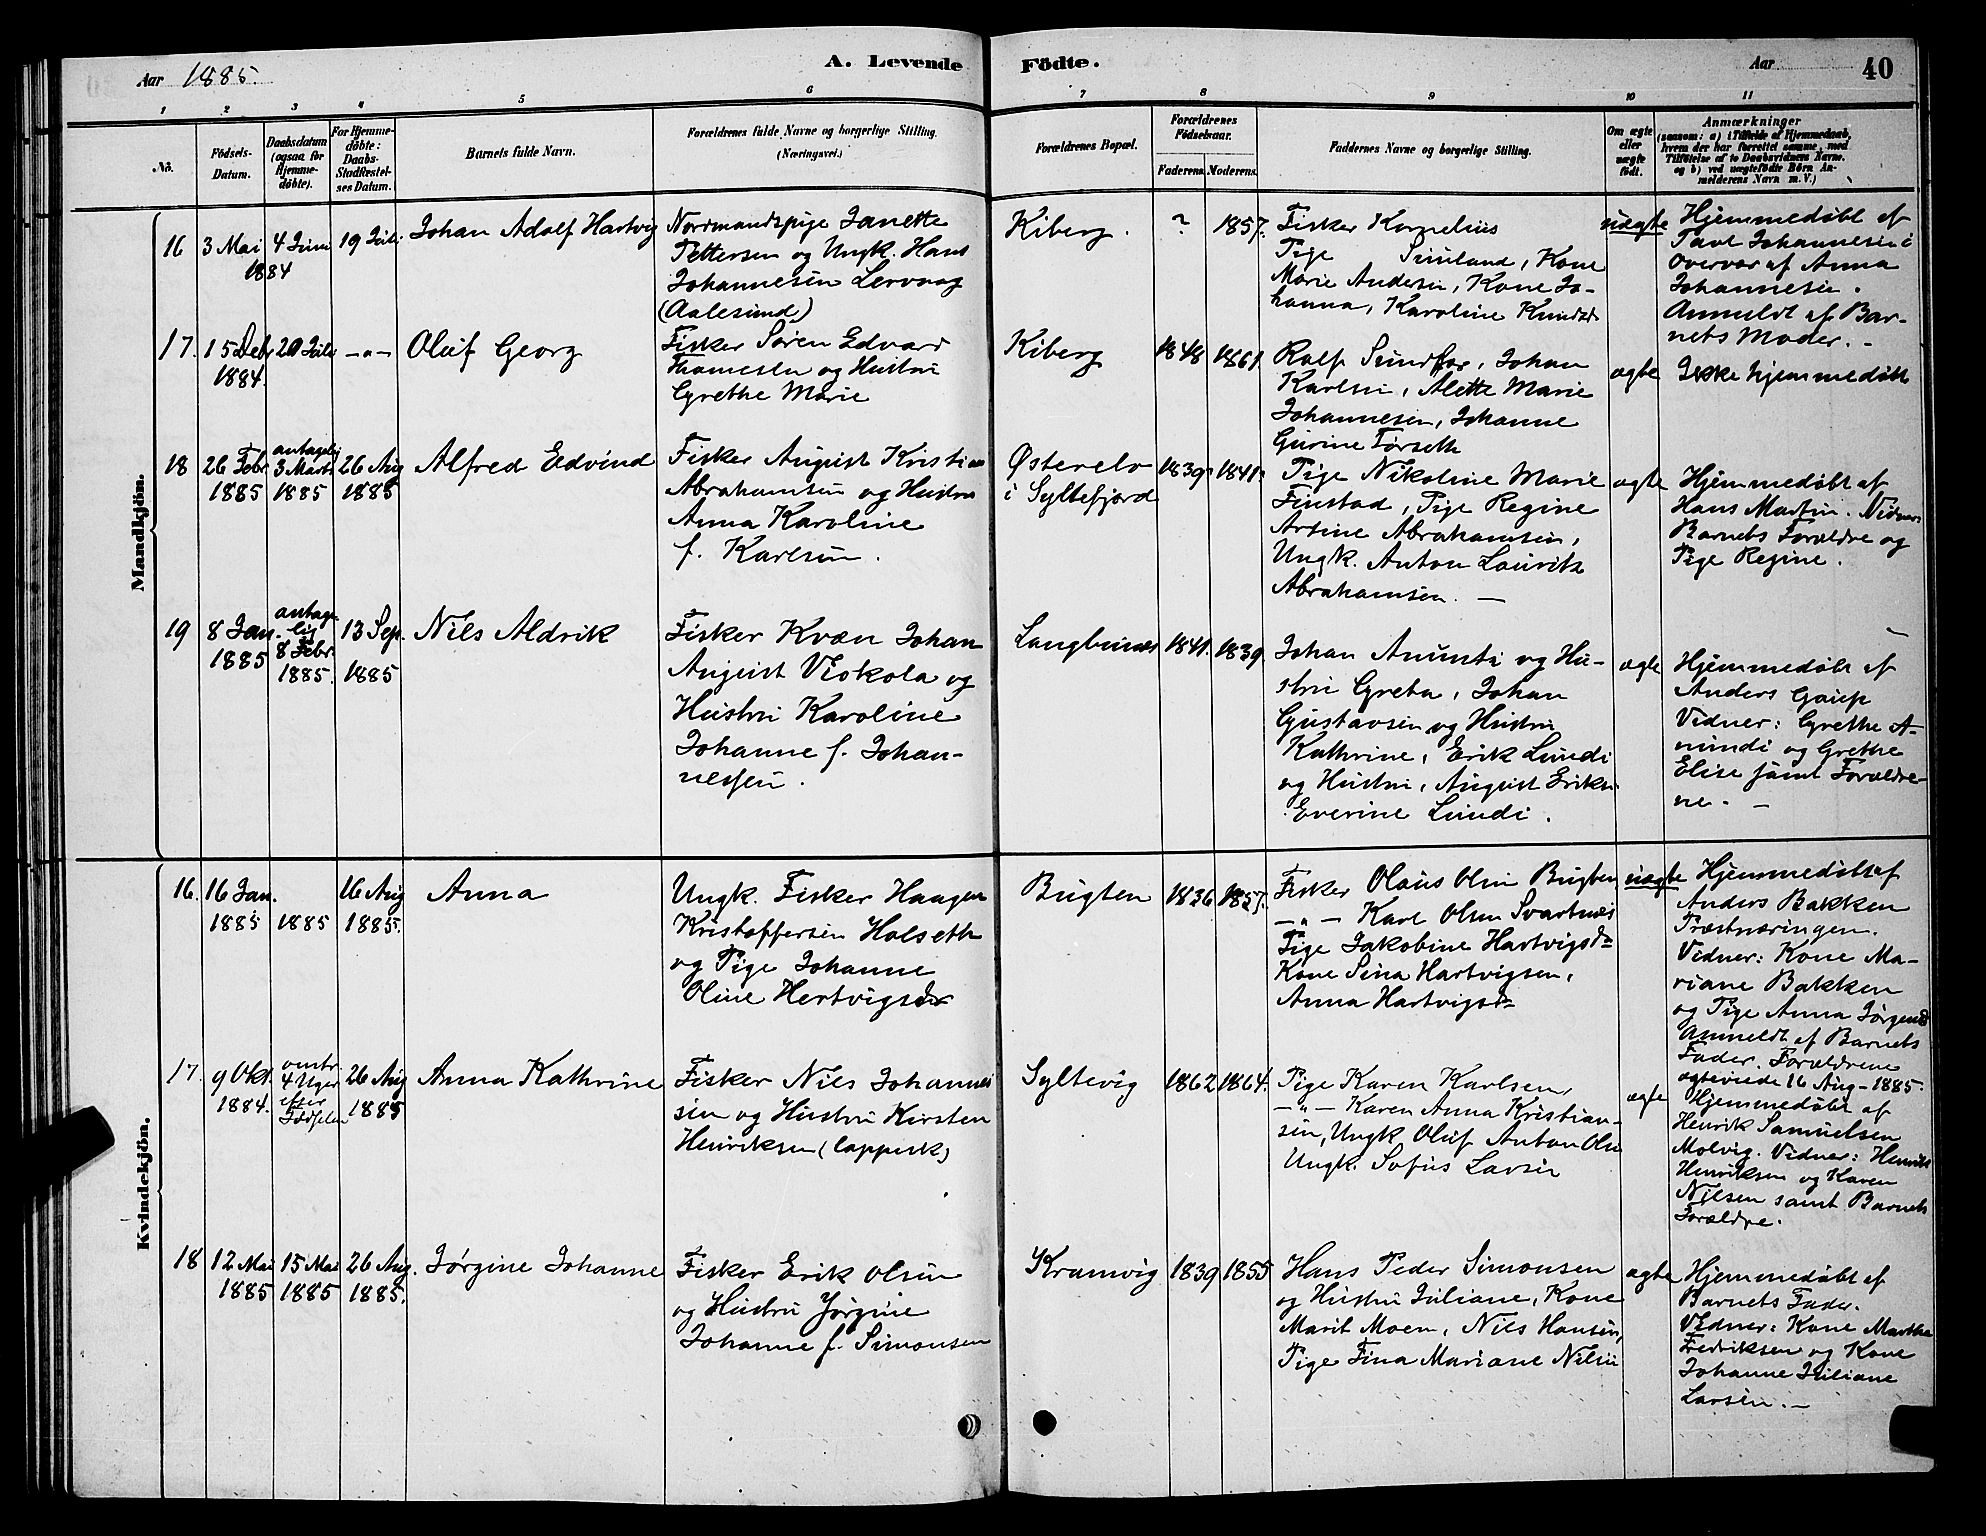 Aar 1885.
A. Levende Födte.
Aar 40
1 2 3 4 5 6 7 8 9 10 11
No.
Födsels-
Datum.
Daabsdatum
(ogsaa for
Hjemme-
döbte).
For Hjemme-
döbte:
Daabs-
Stadfæstel-
ses Datum.
Barnets fulde Navn.
Forældrenes fulde Navne og borgerlige Stilling.
(Næringsvei.)
Forældrenes Bopæl.
Forældrenes
Födselsaar.
Faderens. Moderens.
Faddernes Navne og borgerlige Stilling.
Om ægte
eller
uægte
födt.
Anmærkninger
(saasom: a) i Tilfælde af Hjemmedaab,
hvem der har forrettet samme, med
Tilföielse af to Daabsvidners Navne.
og b) ved uægtefödte Börn An-
melderens Navn m. V.)
Mandkjön.
16
3 Mai
1884
4 Juni
19 Juli
Johan Adolf Hartvig
Nordmandspige Janette
Pettersen og Ungk. Hans
Johannesen Lervaag
(Aalesund)
Kiberg.
?
1857.
Fisker Kornelius
Pige Simland, Kone
Marie Andersen, Kone Jo-
hanna, Karoline Knudsd
uægte
Hjemmedøbt af
Paul Johannesen i
Overvær af Anna
Johannesen.
Anmeldt af Bar-
nets Moder. -
17.
15 Debr
1884.
20 Juli
-"-
Oluf Georg
Fisker Søren Edvard
Thomesen og Hustru
Grethe Marie
Kiberg
1848
1861.
Rolf Sundfær, Johan
Karlsen, Alette Marie
Johannesen, Johanne
Gurine Førseth
ægte
Ikke hjemmedøbt
18
26 Febr
1885
antagelig
3 Marts
1885
26 Aug
1885
Alfred Edvind
Fisker August Kristian
Abrahamsen og Hustru
Anna Karoline
f. Karlsen.
Østerelv
i Syltefjord
1839
1841.
Pige Nikoline Marie
Finstad, Pige Regine
Arsine Abrahamsen,
Ungk. Anton Lauritz
Abrahamsen. -
ægte
Hjemmedøbt af
Hans Martin. Vidner
Barnets Forældre og
Pige Regine.
19
8 Jan.
1885
antage-
lig
8 Febr.
1885.
13 Sep.
1885
Nils Aldrik
Fisker Kvæn Johan
August Viokola og
Hustru Karoline
Johanne f. Johan-
nessen.
Langbunes
1841.
1839.
Johan Anunti og Hu-
stru Greta, Johan
Gustavsen og Hustru
Kathrine, Erik Lundi
og Hustru, August Eriksen
Everine Lundi.
ægte
Hjemmedøbt af
Anders Gaup
Vidner: Grethe A-
nundi og Grethe
Elise samt Forældre-
ne. -
Kvindekjön.
16.
16 Jan.
1885
1885
16 Aug
1885.
Anna
Ungk. Fisker Haagen
Kristoffersen Halseth
og Pige Johanne
Oline Hertvigsdr
Bugten
1836
1857.
Fisker Olaus Olsen Bugten
-"- Karl Olsen Svartnes
Pige Jakobine Hartvigsdr
Kone Sina Hartvigsen,
Anna Hartvigsdr
uægte
Hjemmedøbt af
Anders Bakken
Præstnæringen.
Vidner: Kone Ma-
riane Bakken
og Pige Anna Jørgensd
Anmeldt af Barnets
Fader. Forældrene
ægteviede 16 Aug. 1885.
17.
9 Okt.
1884.
omtr.
4 Uger
efter
Fødselen
26 Aug
1885
Anna Kathrine
Fisker Nils Johanne-
sen og Hustru Kirsten
Henriksen (lappisk)
Syltevig
1862
1864.
Pige Karen Karlsen,
-"- Karen Anna Kristian-
sen, Ungk Oluf Anton Olsen
Ungk. Sofus Larsen
ægte
Hjemmedøbt af
Henrik Samuelsen
Molvig. Vidner: Henrik
Henriksen og Karen
Nilsen samt Barnets
Forældre.
18
12 Mai
1885
15 Mai
1885
26 Aug.
1885.
Jørgine Johanne
Fisker Erik Olsen
og Hustru Jørgine
Johanne f. Simonsen
Kramvig
1839
1855
Hans Peder Simonsen
og Hustru Juliane, Kone
Marit Moen, Nils Hansen,
Pige Fina Mariane Nilsen
ægte
Hjemmedøbt af
Barnets Fader.
Vidner: Kone Marthe
Fredriksen og Kone
Johanne Juliane
Larsen. -